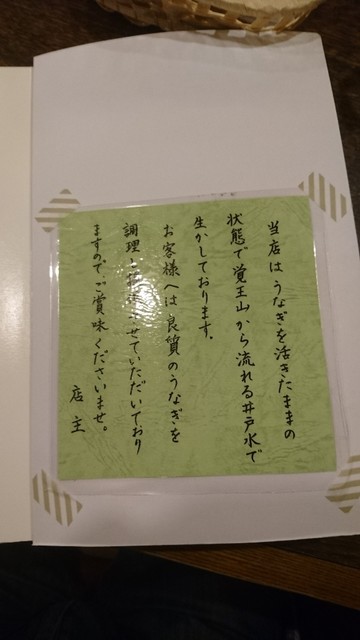 当店はうなぎを活きたままの
状態で覚王山から流れる井戸水で
生かしております。
お客様へは良質のうなぎを
調理と させていただいており
ますので、ご賞味くださいませ。
店主